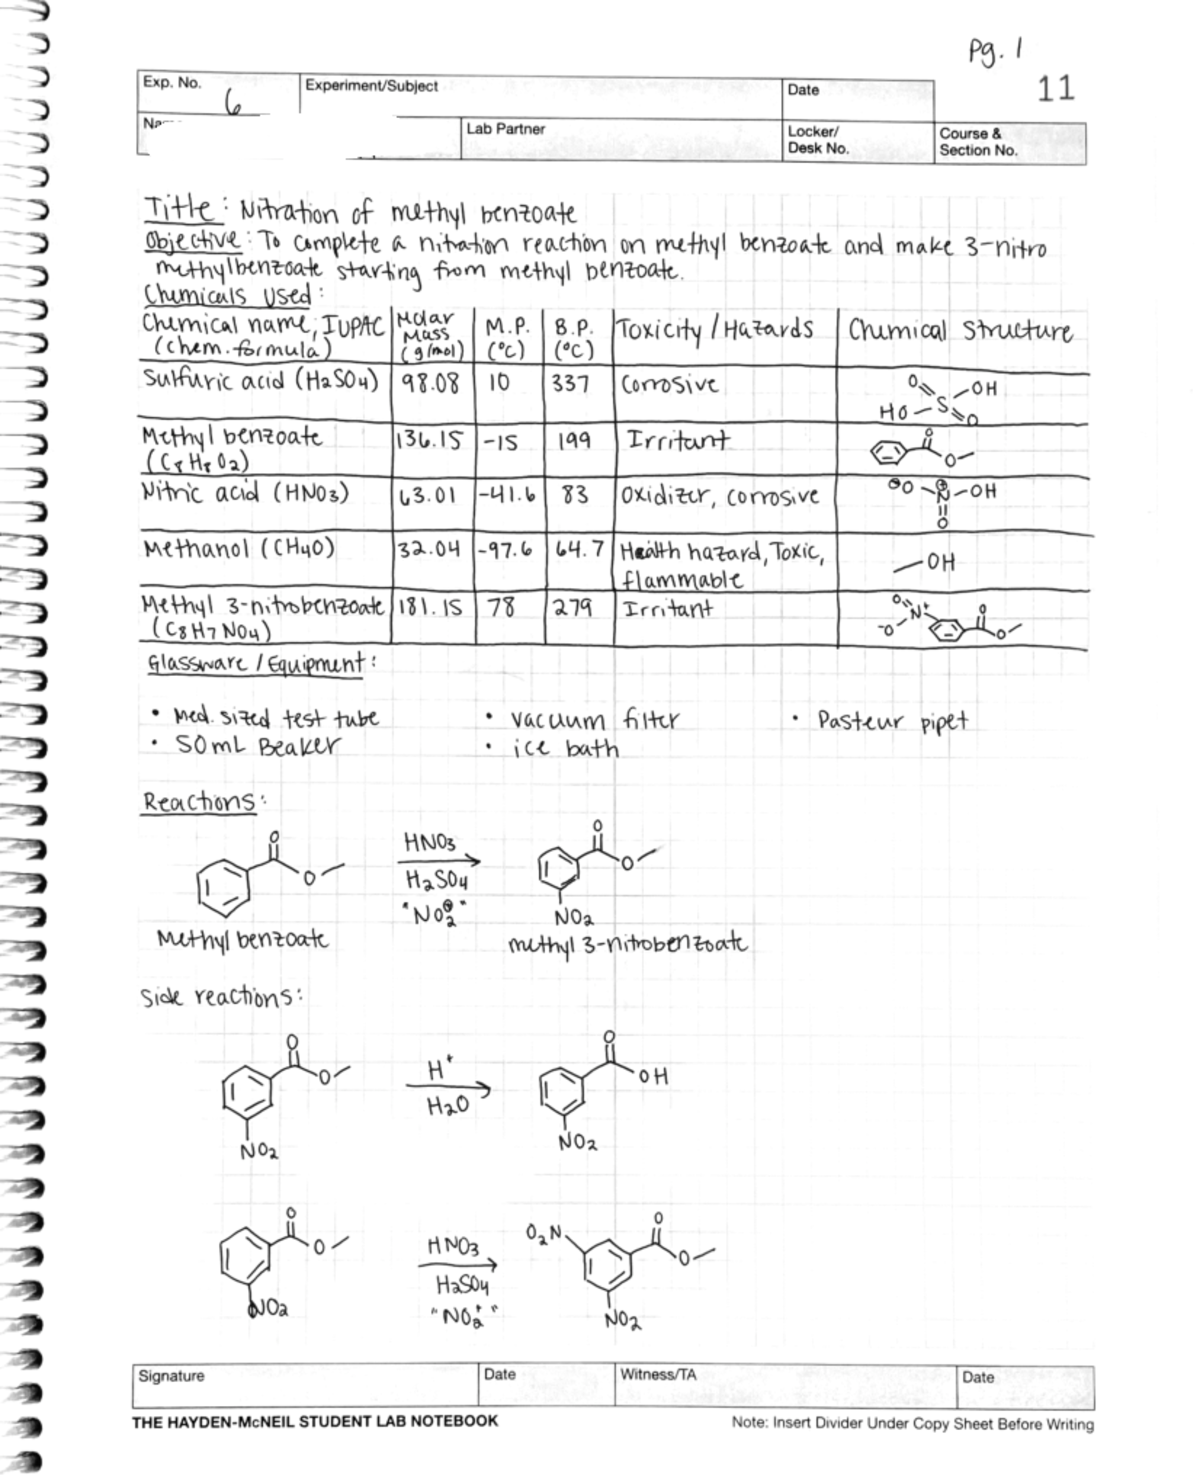 Pg. 1
11
Exp. No. 6 Experiment/Subject Date
Na Lab Partner Locker/ Desk No. Course & Section No.
Title: Nitration of methyl benzoate
Objective: To complete a nitration reaction on methyl benzoate and make 3-nitro
methylbenzoate starting from methyl benzoate.
Chemicals Used:
Chemical name, IUPAC (chem. formula) Molar Mass (g/mol) M.P. (°C) B.P. (°C) Toxicity / Hazards Chemical Structure
Sulfuric acid (H2SO4) 98.08 10 337 Corrosive O OH HO S O
Methyl benzoate (C8H8O2) 136.15 -15 199 Irritant O O
Nitric acid (HNO3) 63.01 -41.6 83 Oxidizer, corrosive ⊖O N⊕ OH O
Methanol (CH4O) 32.04 -97.6 64.7 Health hazard, Toxic, flammable OH
Methyl 3-nitrobenzoate (C8H7NO4) 181.15 78 279 Irritant O N+ -O O O
Glassware / Equipment:
• Med. sized test tube • vacuum filter • Pasteur pipet
• 50 mL Beaker • ice bath
Reactions:
O O HNO3 O O
H2SO4
"NO2⊕" NO2
Methyl benzoate methyl 3-nitrobenzoate
Side reactions:
O O H+ O OH
H2O
NO2 NO2
O O HNO3 O2N O O
H2SO4
NO2 "NO2+" NO2
Signature Date Witness/TA Date
THE HAYDEN-McNEIL STUDENT LAB NOTEBOOK Note: Insert Divider Under Copy Sheet Before Writing